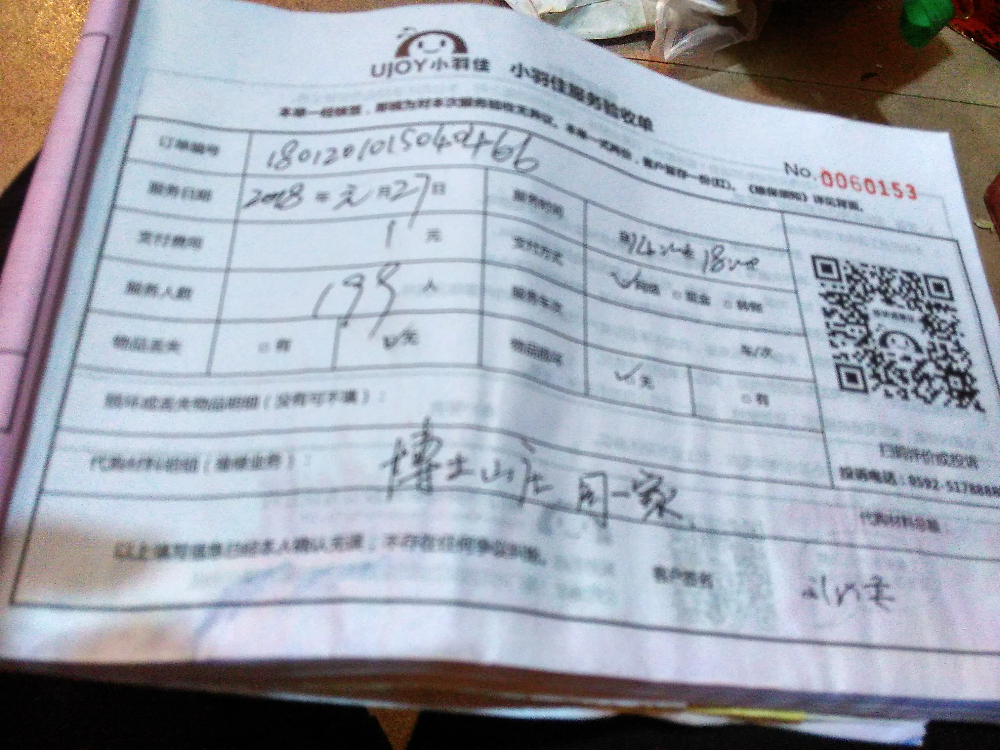 UJOY小羽佳 小羽佳服务验收单
本单一经签署，即视为对本次服务验收无异议。本单一式两份，客户留存一份(红)。《维保须知》详见背面。
No.0060153
订单编号 18012010150404466
服务日期 2018年元月27日 服务时间
支付费用 1元 支付方式
服务人数 人 服务车次 车/次
物品丢失 □有 无 物品损坏 无 □有
损坏或丢失物品明细（没有可不填）：
代购材料明细（维修业务）：
博士山庄 同一家
扫码评价或投诉
代购材料总额
以上填写信息已经本人确认无误，不存在任何争议纠纷。 客户签名